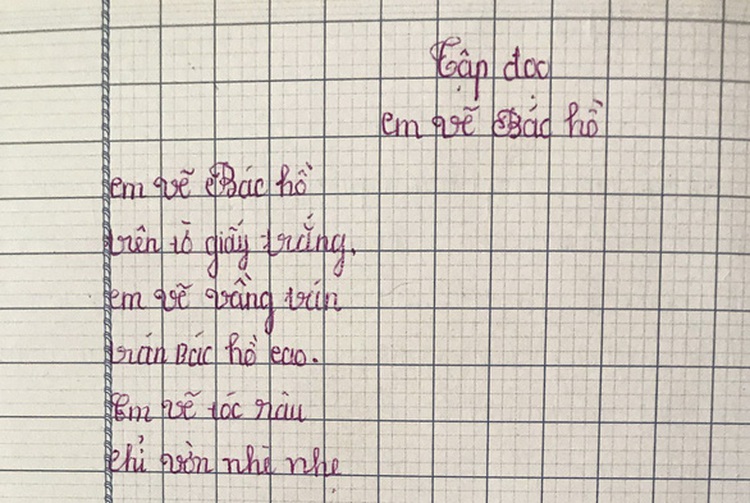 Tập doc
em vẽ Bác hồ
em vẽ Bác hồ
trên tờ giấy trắng,
em vẽ vầng trán
trán Bác hồ cao.
Em vẽ tóc râu
chỉ vờn nhè nhẹ